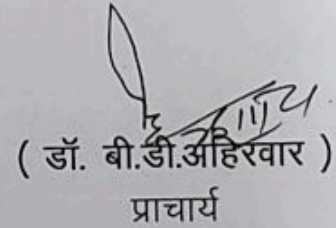 ( डॉ. बी.डी.अहिरवार )
प्राचार्य